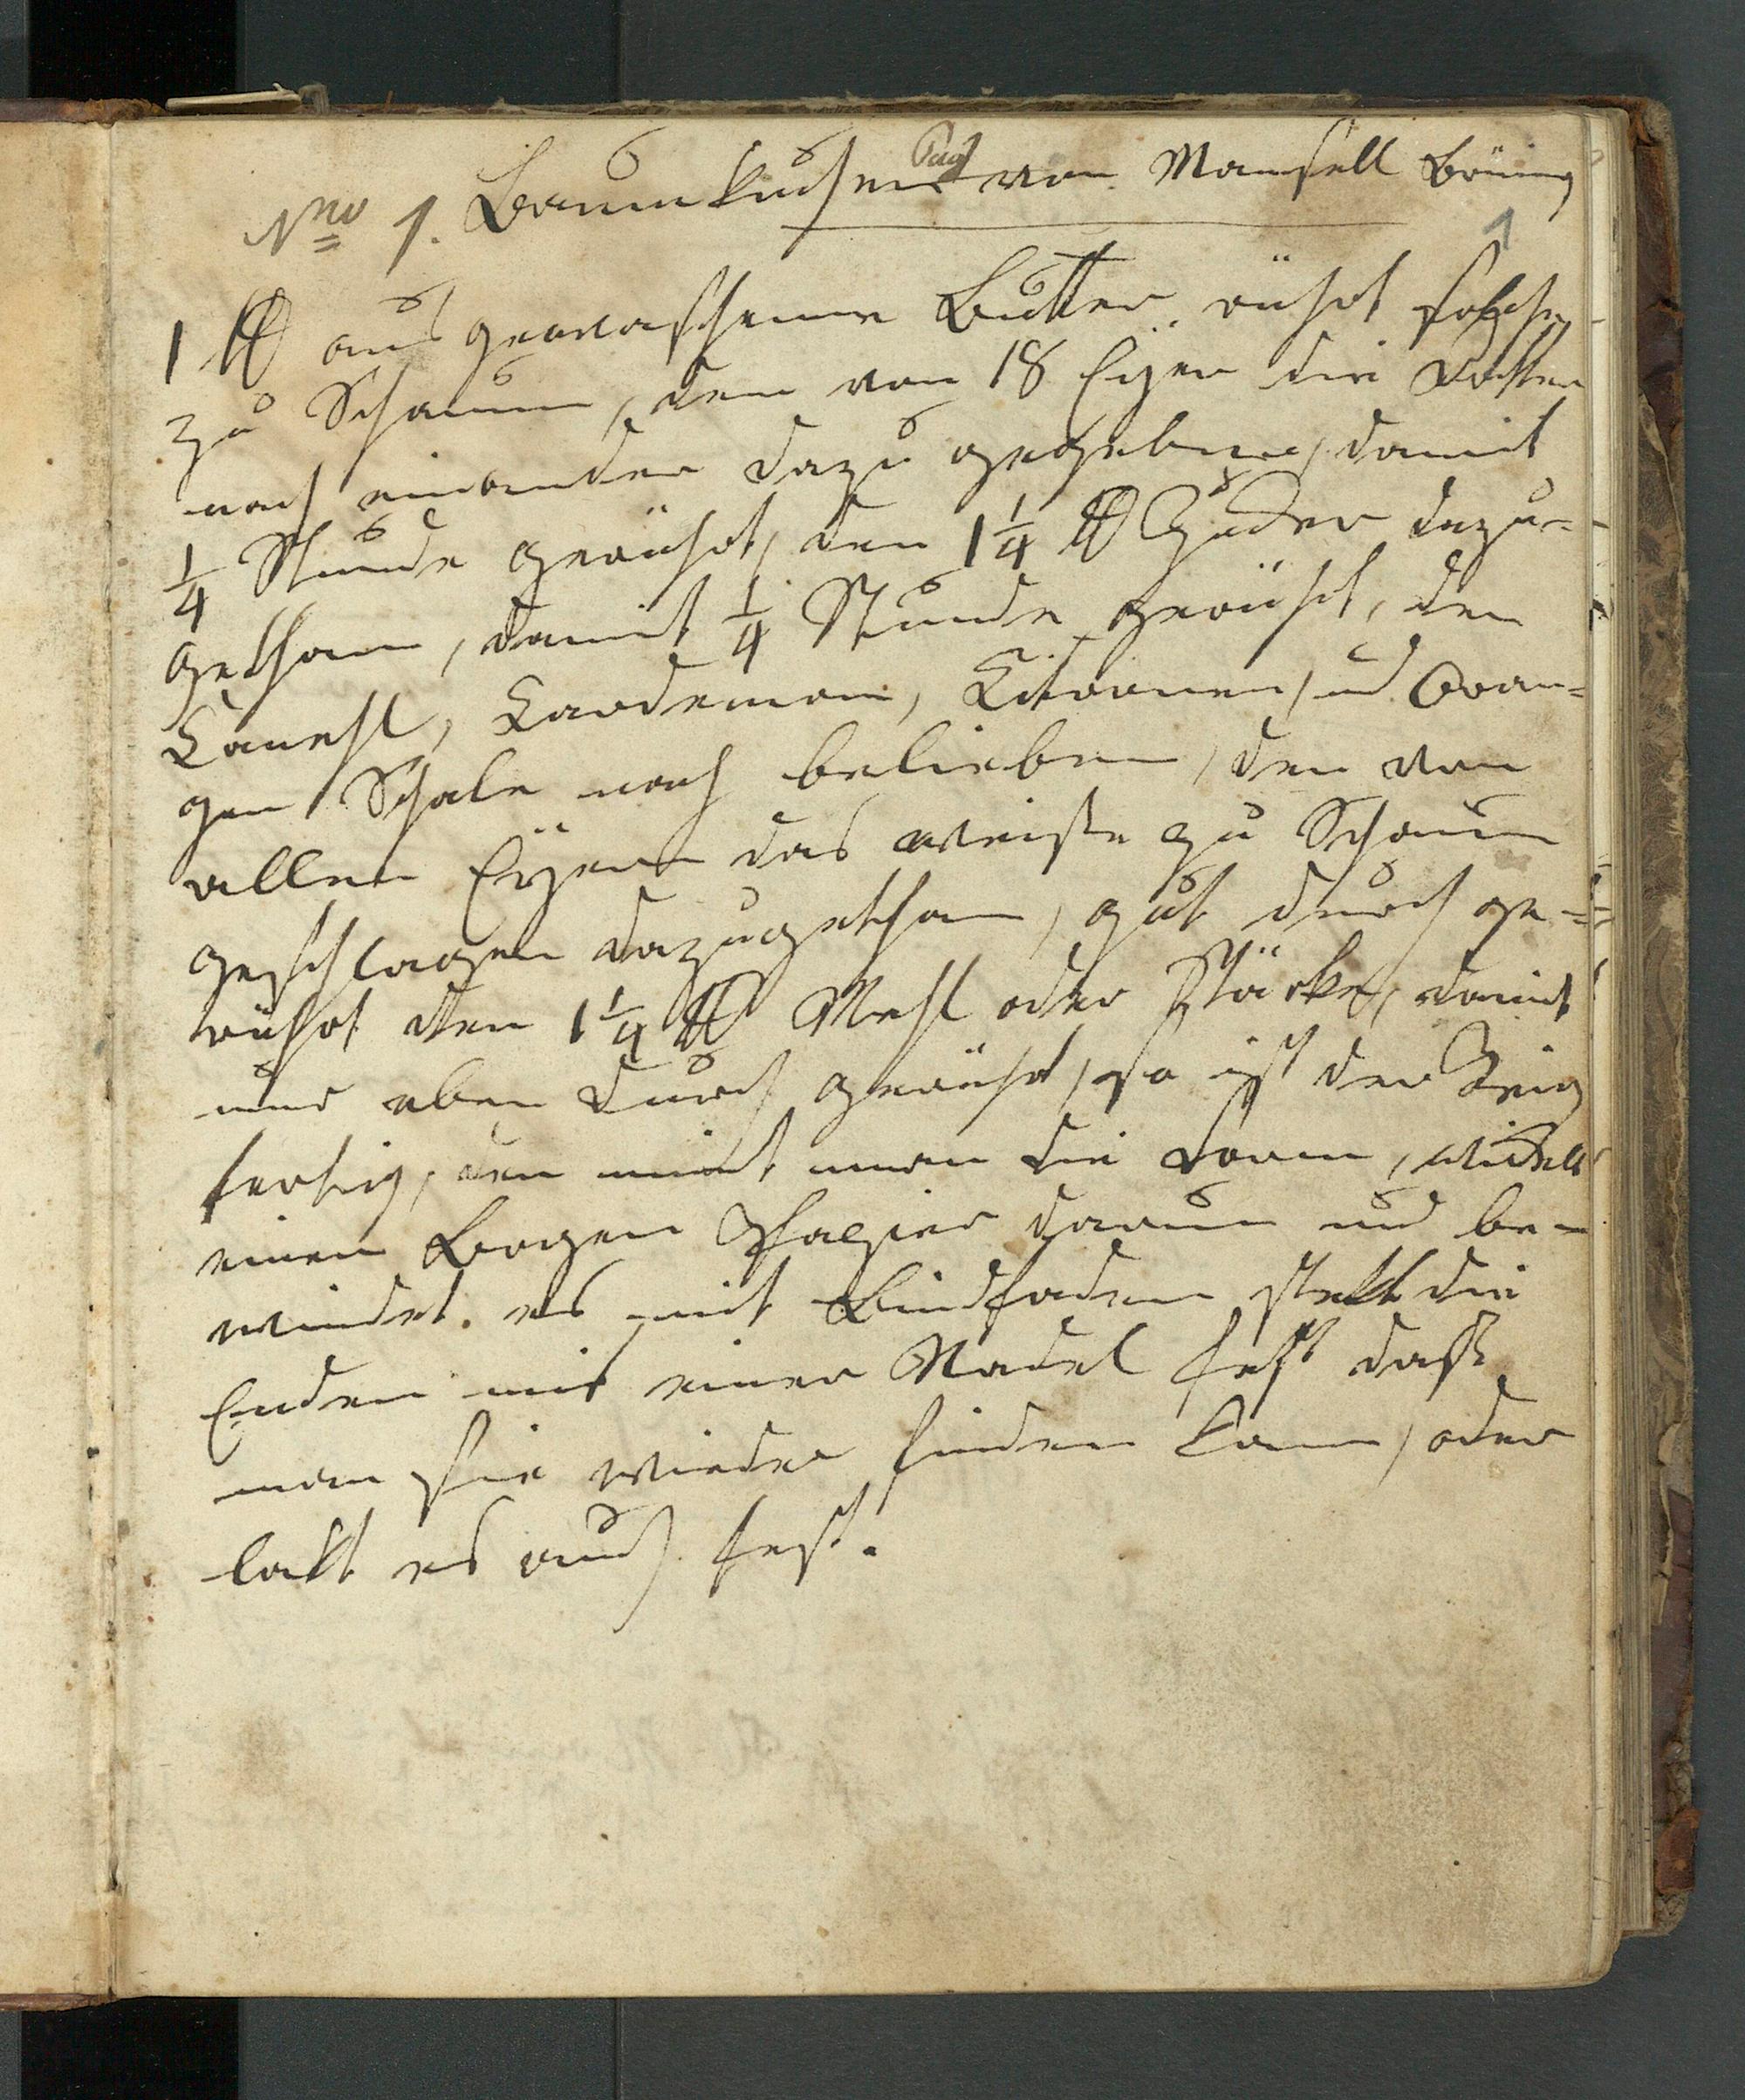 Nro 1. Baumkuchen von Mamsell Brüning
1
1 ℔ aus gewaschene Butter rührt solche
zu Schaum, den von 18 Eyer die Dotter
nach einander dazu gegeben, damit
1/4 Stunde gerührt, den 1 1/4 ℔ Zucker dazu=
gethan, damit 1/4 Stunde gerührt, den
Canehl, Cardemom, Citronen, und Oran=
gen Schale nach belieben, den von
allen Eyern das weiße zu Schaum
geschlagen dazugethan, gut durch ge=
rührt den 1 1/4 ℔ Mehl oder Stärke, damit
nur eben durch gerührt, so ist der Teig
fertig, den nimt man die Form, wickelt
einen Bogen Papier darum und be=
windet es mit Bindfaden stekt die
Enden mit einer Nadel fest daß
man sie wieder finden kann, oder
lakt es auch fest.